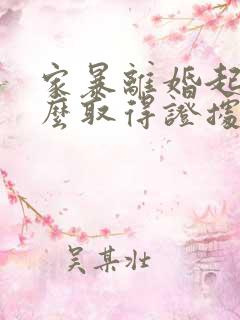 家暴離婚起
麼取得證據
吴某壯